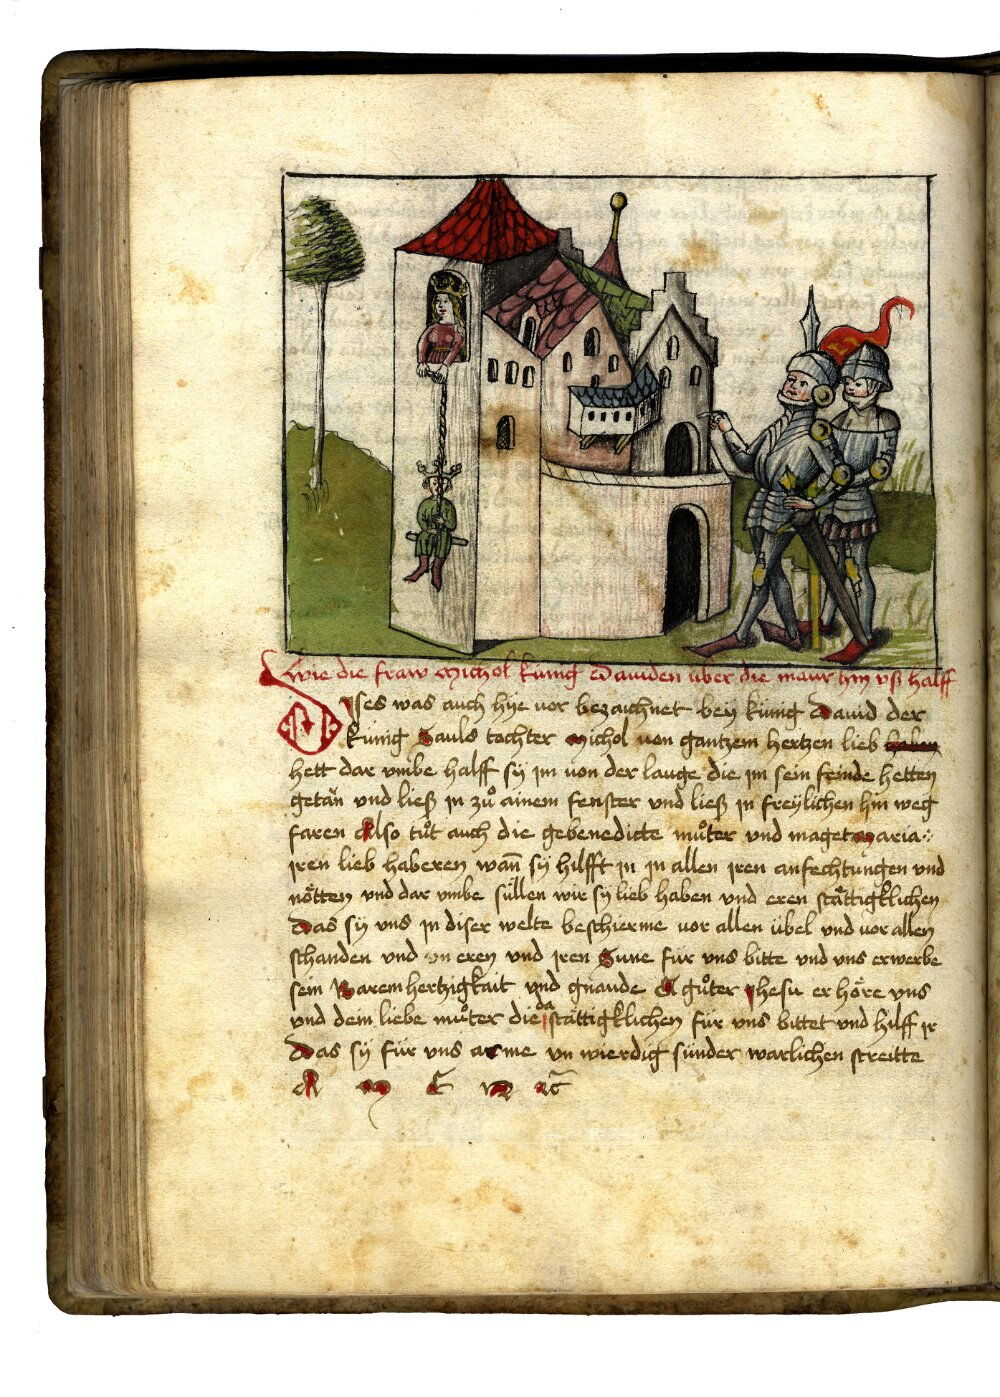 Wie die fraw Michol künig Dauiden über die maur hin vß halff
Dises was auch hye vor bezaichnet bey künig Dauid der
künig Sauls tochter Michol von gantzem hertzen lieb haben
hett dar vmbe halff sÿ jm von der lauge die jm sein feinde hetten
getăn vnd ließ in zů ainem fenster vnd ließ in freÿlichen hin weg
faren Also tůt auch die gebenedicte můter vnd maget maria
jren lieb haberen wañ sÿ hilfft jn jn allen jren anfechtungen vnd
nötten vnd dar vmbe süllen wir sÿ lieb haben vnd eren stättigklichen
Das sÿ vns jn diser welte beschierme vor allen übel vnd vor allen
schanden vnd vn eren vnd jren Sune für vns bitte vnd vns erwerbe
sein Baremhertzigkait vnd gnaude A gůter jhesu er höre vns
vnd dein liebe můter die da stättigklichen für vns bittet vnd hilff ir
Das sÿ für vns arme vn wierdig sünder warlichen streitte
A m E n